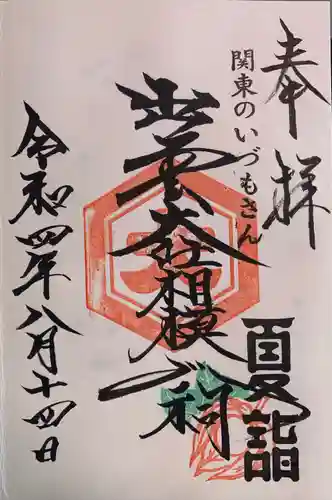 奉拝
関東のいづもさん
出雲大社相模分祠
夏詣
令和四年八月十四日